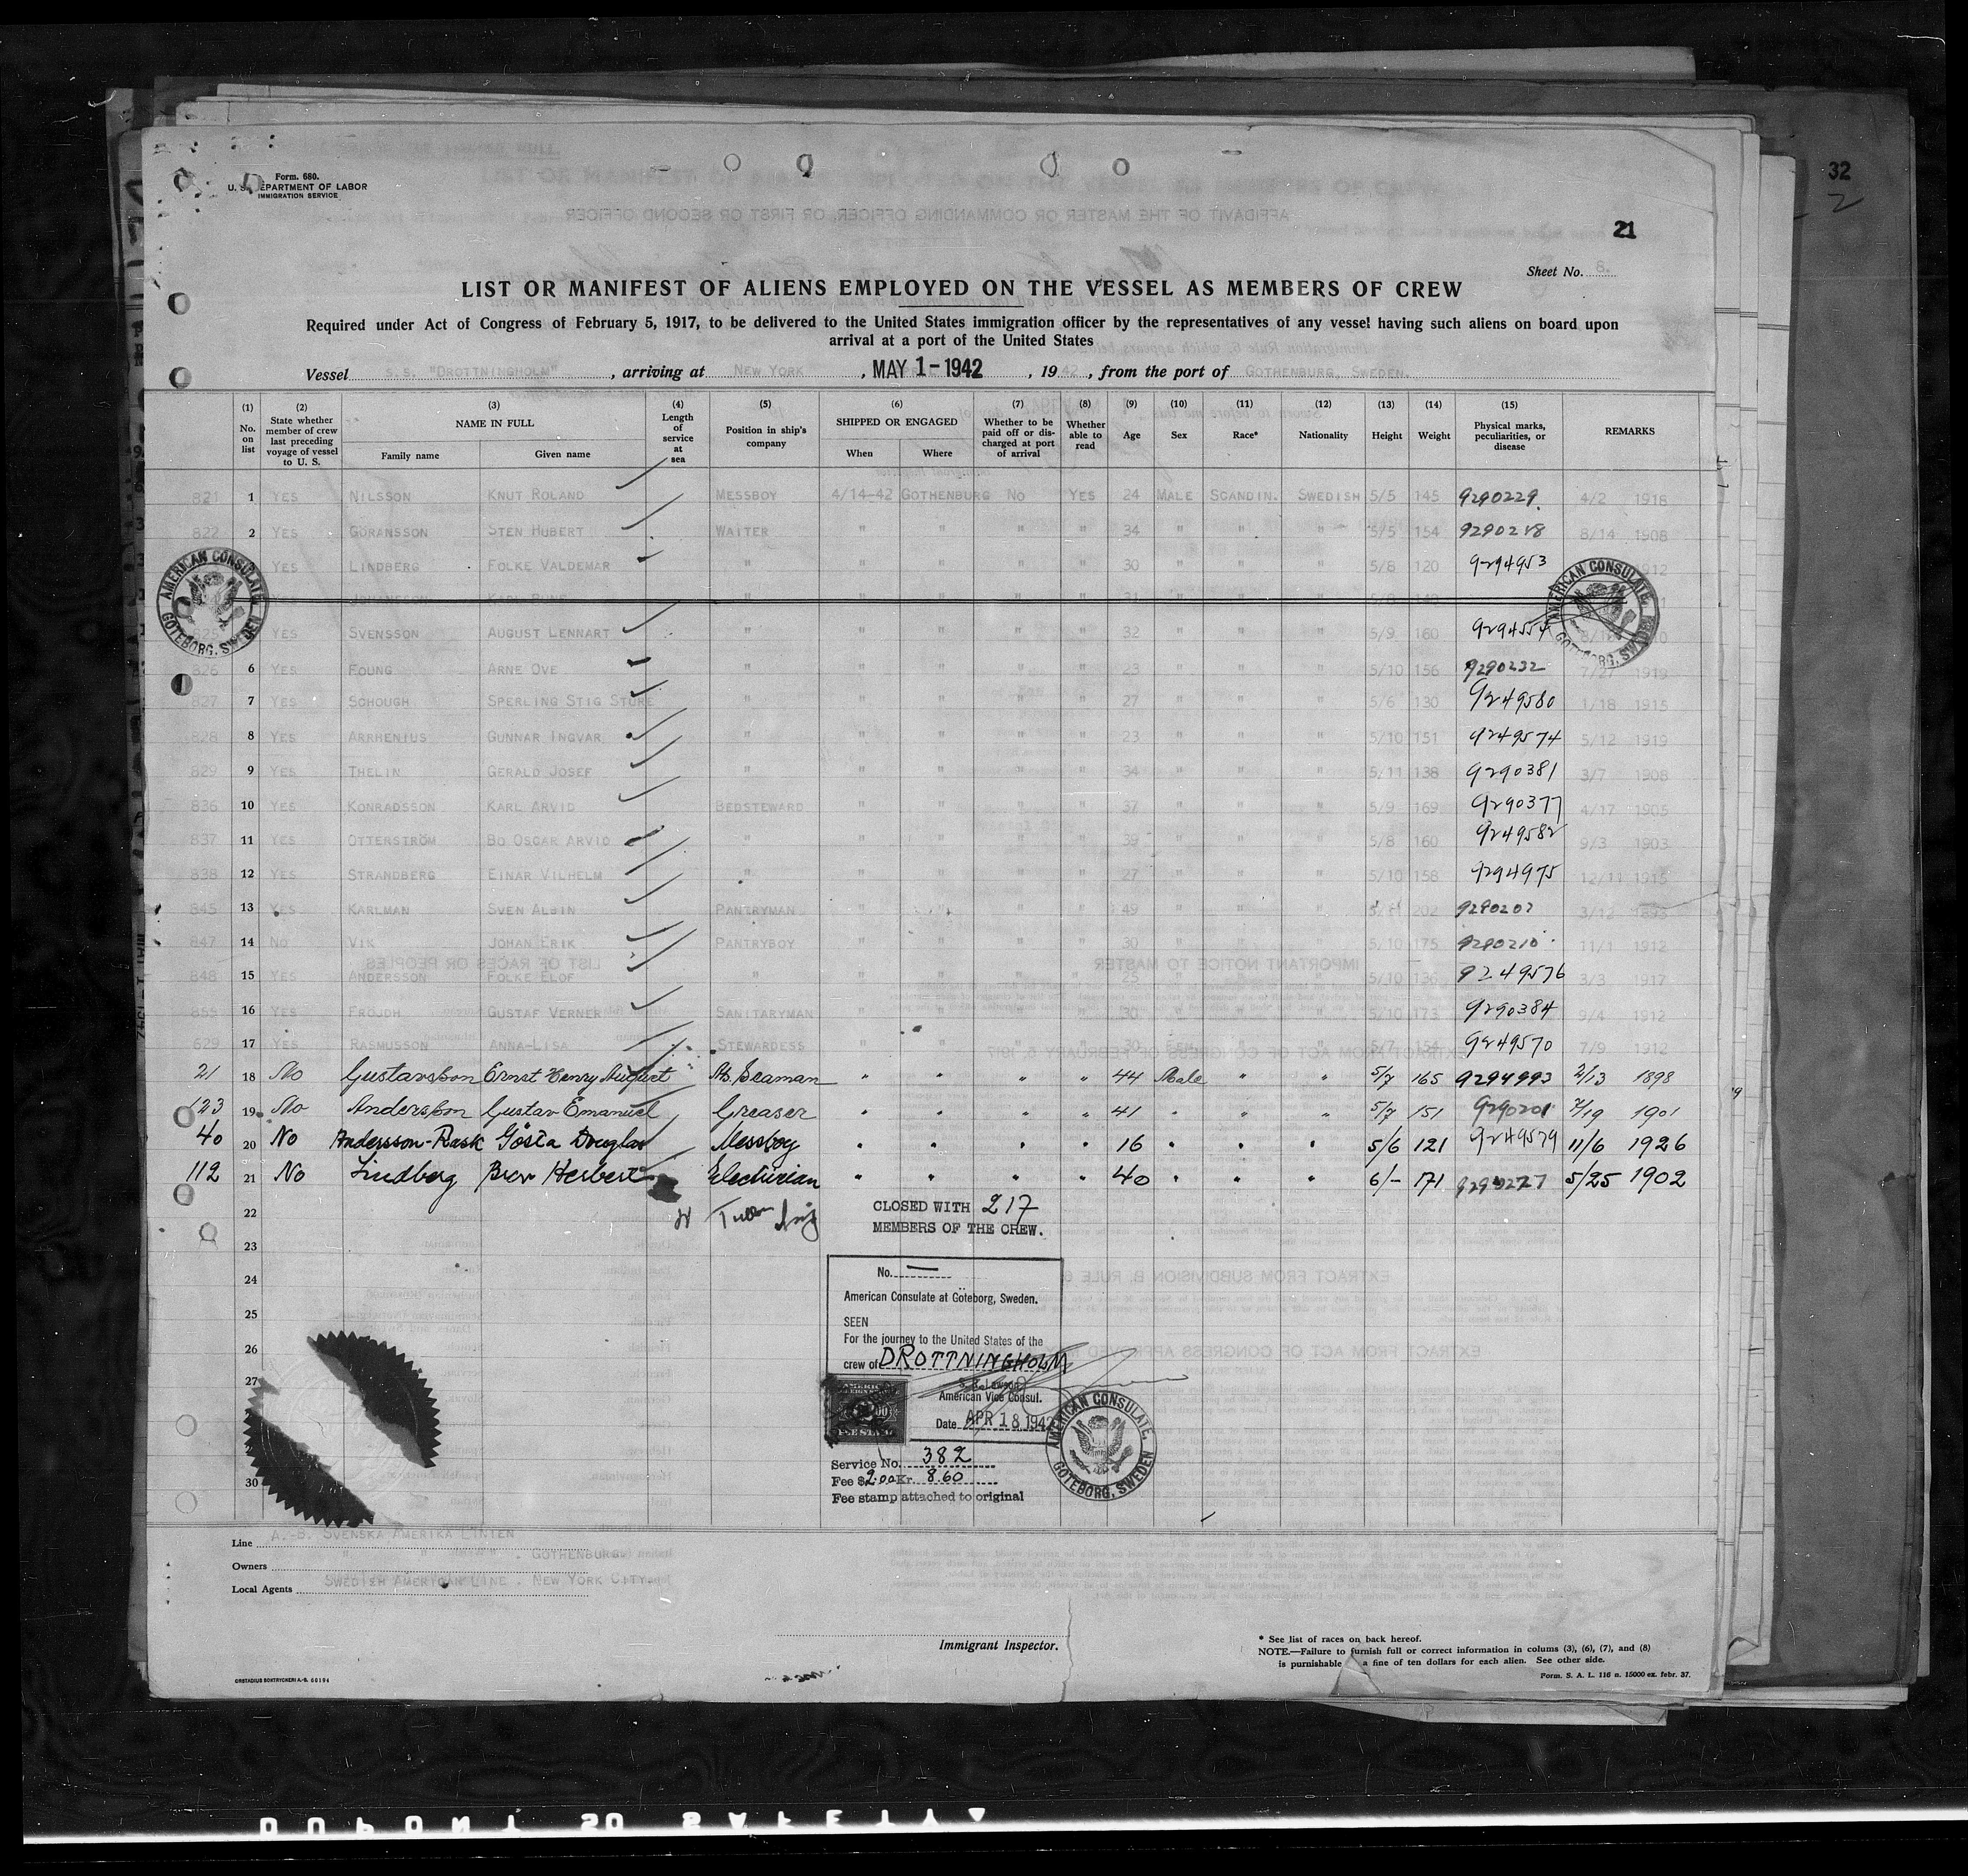 32
2
Form. 680.
U. S. DEPARTMENT OF LABOR
IMMIGRATION SERVICE
21
Sheet No. 8.
LIST OR MANIFEST OF ALIENS EMPLOYED ON THE VESSEL AS MEMBERS OF CREW
Required under Act of Congress of February 5, 1917, to be delivered to the United States immigration officer by the representatives of any vessel having such aliens on board upon
arrival at a port of the United States
Vessel S.S. "DROTTNINGHOLM", arriving at NEW YORK, MAY 1 - 1942, 1942, from the port of GOTHENBURG, SWEDEN.
(1) No. on list (2) State whether member of crew last preceding voyage of vessel to U. S. (3) NAME IN FULL Family name Given name (4) Length of service at sea (5) Position in ship's company (6) SHIPPED OR ENGAGED When Where (7) Whether to be paid off or discharged at port of arrival (8) Whether able to read (9) Age (10) Sex (11) Race* (12) Nationality (13) Height (14) Weight (15) Physical marks, peculiarities, or disease REMARKS
821 1 YES NILSSON KNUT ROLAND MESSBOY 4/14-42 GOTHENBURG NO YES 24 MALE SCANDIN. SWEDISH 5/5 145 9290229 4/2 1918
822 2 YES GÖRANSSON STEN HUBERT WAITER " " " " 34 " " " 5/5 154 9290218 8/14 1908
YES LINDBERG FOLKE VALDEMAR " " " " " 30 " " " 5/8 120 9294953 1912
JOHANSSON KARL RUNE 31
YES SVENSSON AUGUST LENNART " " " " " 32 " " " 5/9 160 9294554
826 6 YES FOUNG ARNE OVE " " " " " 23 " " " 5/10 156 9290232 7/27 1919
827 7 YES SCHOUGH SPERLING STIG STURE " " " " " 27 " " " 5/6 130 9249580 1/18 1915
828 8 YES ARRHENIUS GUNNAR INGVAR " " " " " 23 " " " 5/10 151 9249574 5/12 1919
829 9 YES THELIN GERALD JOSEF " " " " " 34 " " " 5/11 138 9290381 3/7 1908
836 10 YES KONRADSSON KARL ARVID BEDSTEWARD " " " " 37 " " " 5/9 169 9290377 4/17 1905
837 11 YES OTTERSTRÖM BO OSCAR ARVID " " " " " 39 " " " 5/8 160 9249582 9/3 1903
838 12 YES STRANDBERG EINAR VILHELM " " " " " 27 " " " 5/10 158 9294975 12/11 1915
845 13 YES KARLMAN SVEN ALBIN PANTRYMAN " " " " 49 " " " 202 9290207 3/12 1893
847 14 NO VIK JOHAN ERIK PANTRYBOY " " " " 30 " " " 5/10 175 9290210 11/1 1912
848 15 YES ANDERSSON FOLKE ELOF " " " " " 25 " " " 5/10 136 9249576 3/3 1917
855 16 YES FRÖJDH GUSTAF VERNER SANITARYMAN " " " " 30 " " " 5/10 173 9290384 9/4 1912
629 17 YES RASMUSSON ANNA-LISA STEWARDESS " " " " 30 FEM. " " 5/7 154 9249570 7/9 1912
21 18 No Gustavsson Ernst Henry August Ab. Seaman " " " " 44 Male " " 5/7 165 9294993 2/13 1898
123 19 No Andersson Gustav Emanuel Greaser " " " " 41 " " " 5/7 151 9290201 7/19 1901
40 20 No Andersson-Rask Gösta Douglas Messboy " " " " 16 " " " 5/6 121 9249579 11/6 1926
112 21 No Lindberg Bror Herbert Electrician " " " " 40 " " " 6/- 171 9290227 5/25 1902
22
CLOSED WITH 217
MEMBERS OF THE CREW.
23
24
25
26
27
30
No. —
American Consulate at Göteborg, Sweden.
SEEN
For the journey to the United States of the
crew of DROTTNINGHOLM
S. R. Lawson
American Vice Consul.
Date APR 18 1942
Service No. 382
Fee $2.00 Kr. 8.60
Fee stamp attached to original
AMERICAN CONSULATE. GÖTEBORG, SWEDEN
AMERICAN CONSULATE. GÖTEBORG, SWEDEN
AMERICAN CONSULATE. GÖTEBORG, SWEDEN
Line A.-B. SVENSKA AMERIKA LINIEN
Owners " " " . GOTHENBURG
Local Agents SWEDISH AMERICAN LINE . NEW YORK CITY
Immigrant Inspector.
* See list of races on back hereof.
NOTE.—Failure to furnish full or correct information in colums (3), (6), (7), and (8)
is punishable a fine of ten dollars for each alien. See other side.
Form. S. A. L. 116 a. 15000 ex. febr. 37.
DUPONT SO SAFETY